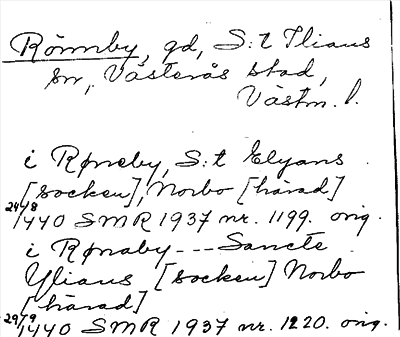 Rönnby, gd, S:t Ilians
sn, Västerås stad,
Västm. l.
i Røneby, S:t Elyans
[socken], Norbo [härad]
24/8 1440 SMR 1937 nr. 1199. orig.
i Rønaby --- Sancte
Ylians [socken] Norbo
[härad]
29/9 1440 SMR 1937 nr. 1220. orig.